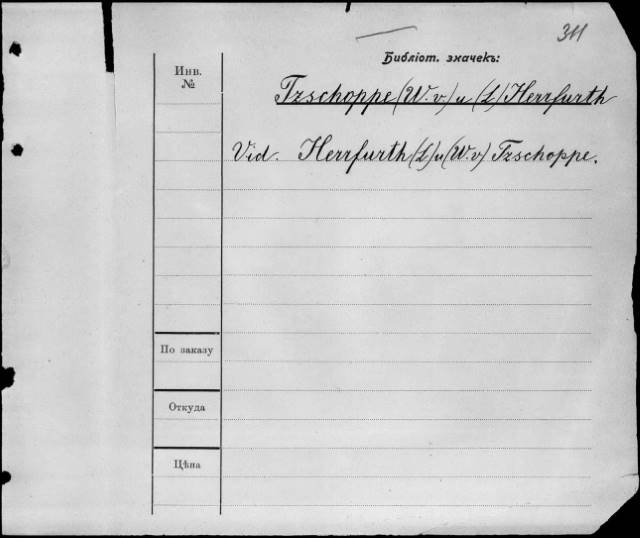 311
Библіот. значекъ:
Инв.
№
Tzschoppe (W. v) u (L) Herrfurth
Vid. Herrfurth (L) u (W. v) Tzschoppe.
По заказу
Откуда
Цѣна